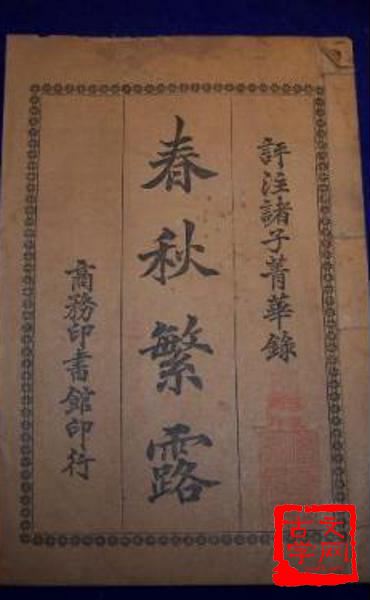 評注諸子菁華錄
春秋繁露
商務印書館印行